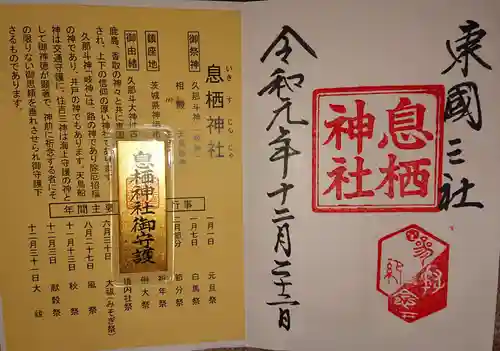 東國三社
息栖
神社
参拝
記念
令和元年十二月二十二日
息栖神社
いきすじんじゃ
御祭神
久那斗神
相殿
鎮座地
茨城県神栖
御由緒
久那斗大神は古
鹿島、香取の神々と共に東国
され、上下の信仰の厚い神社で
久那斗神「岐神」は、路の神であり除厄招福
の神であり、井戸の神でもあります。天鳥船
神は交通守護に、住吉三神は海上守護の神と
して御神徳が顕著で、神前に祈念する者にそ
の限りない御恩頼を垂れさせられ御守護下
さるものであります。
息栖神社御守護
年間主要行事
一月一日 元旦祭
一月七日 白馬祭
節分祭
祈年祭
例大祭
境内社祭
六月三十日 大祓(みそぎ祭)
八月二十七日 風祭
十一月十三日 秋祭
十二月三日 献穀祭
十二月三十一日 大祓